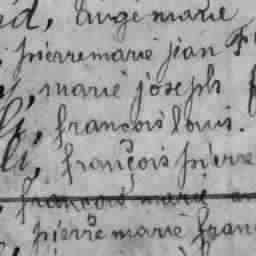 ed, ange marie
, pierre marie jean
, marie joseph
li, francois louis.
li, françois pierre
, francois marie
pierre marie fran